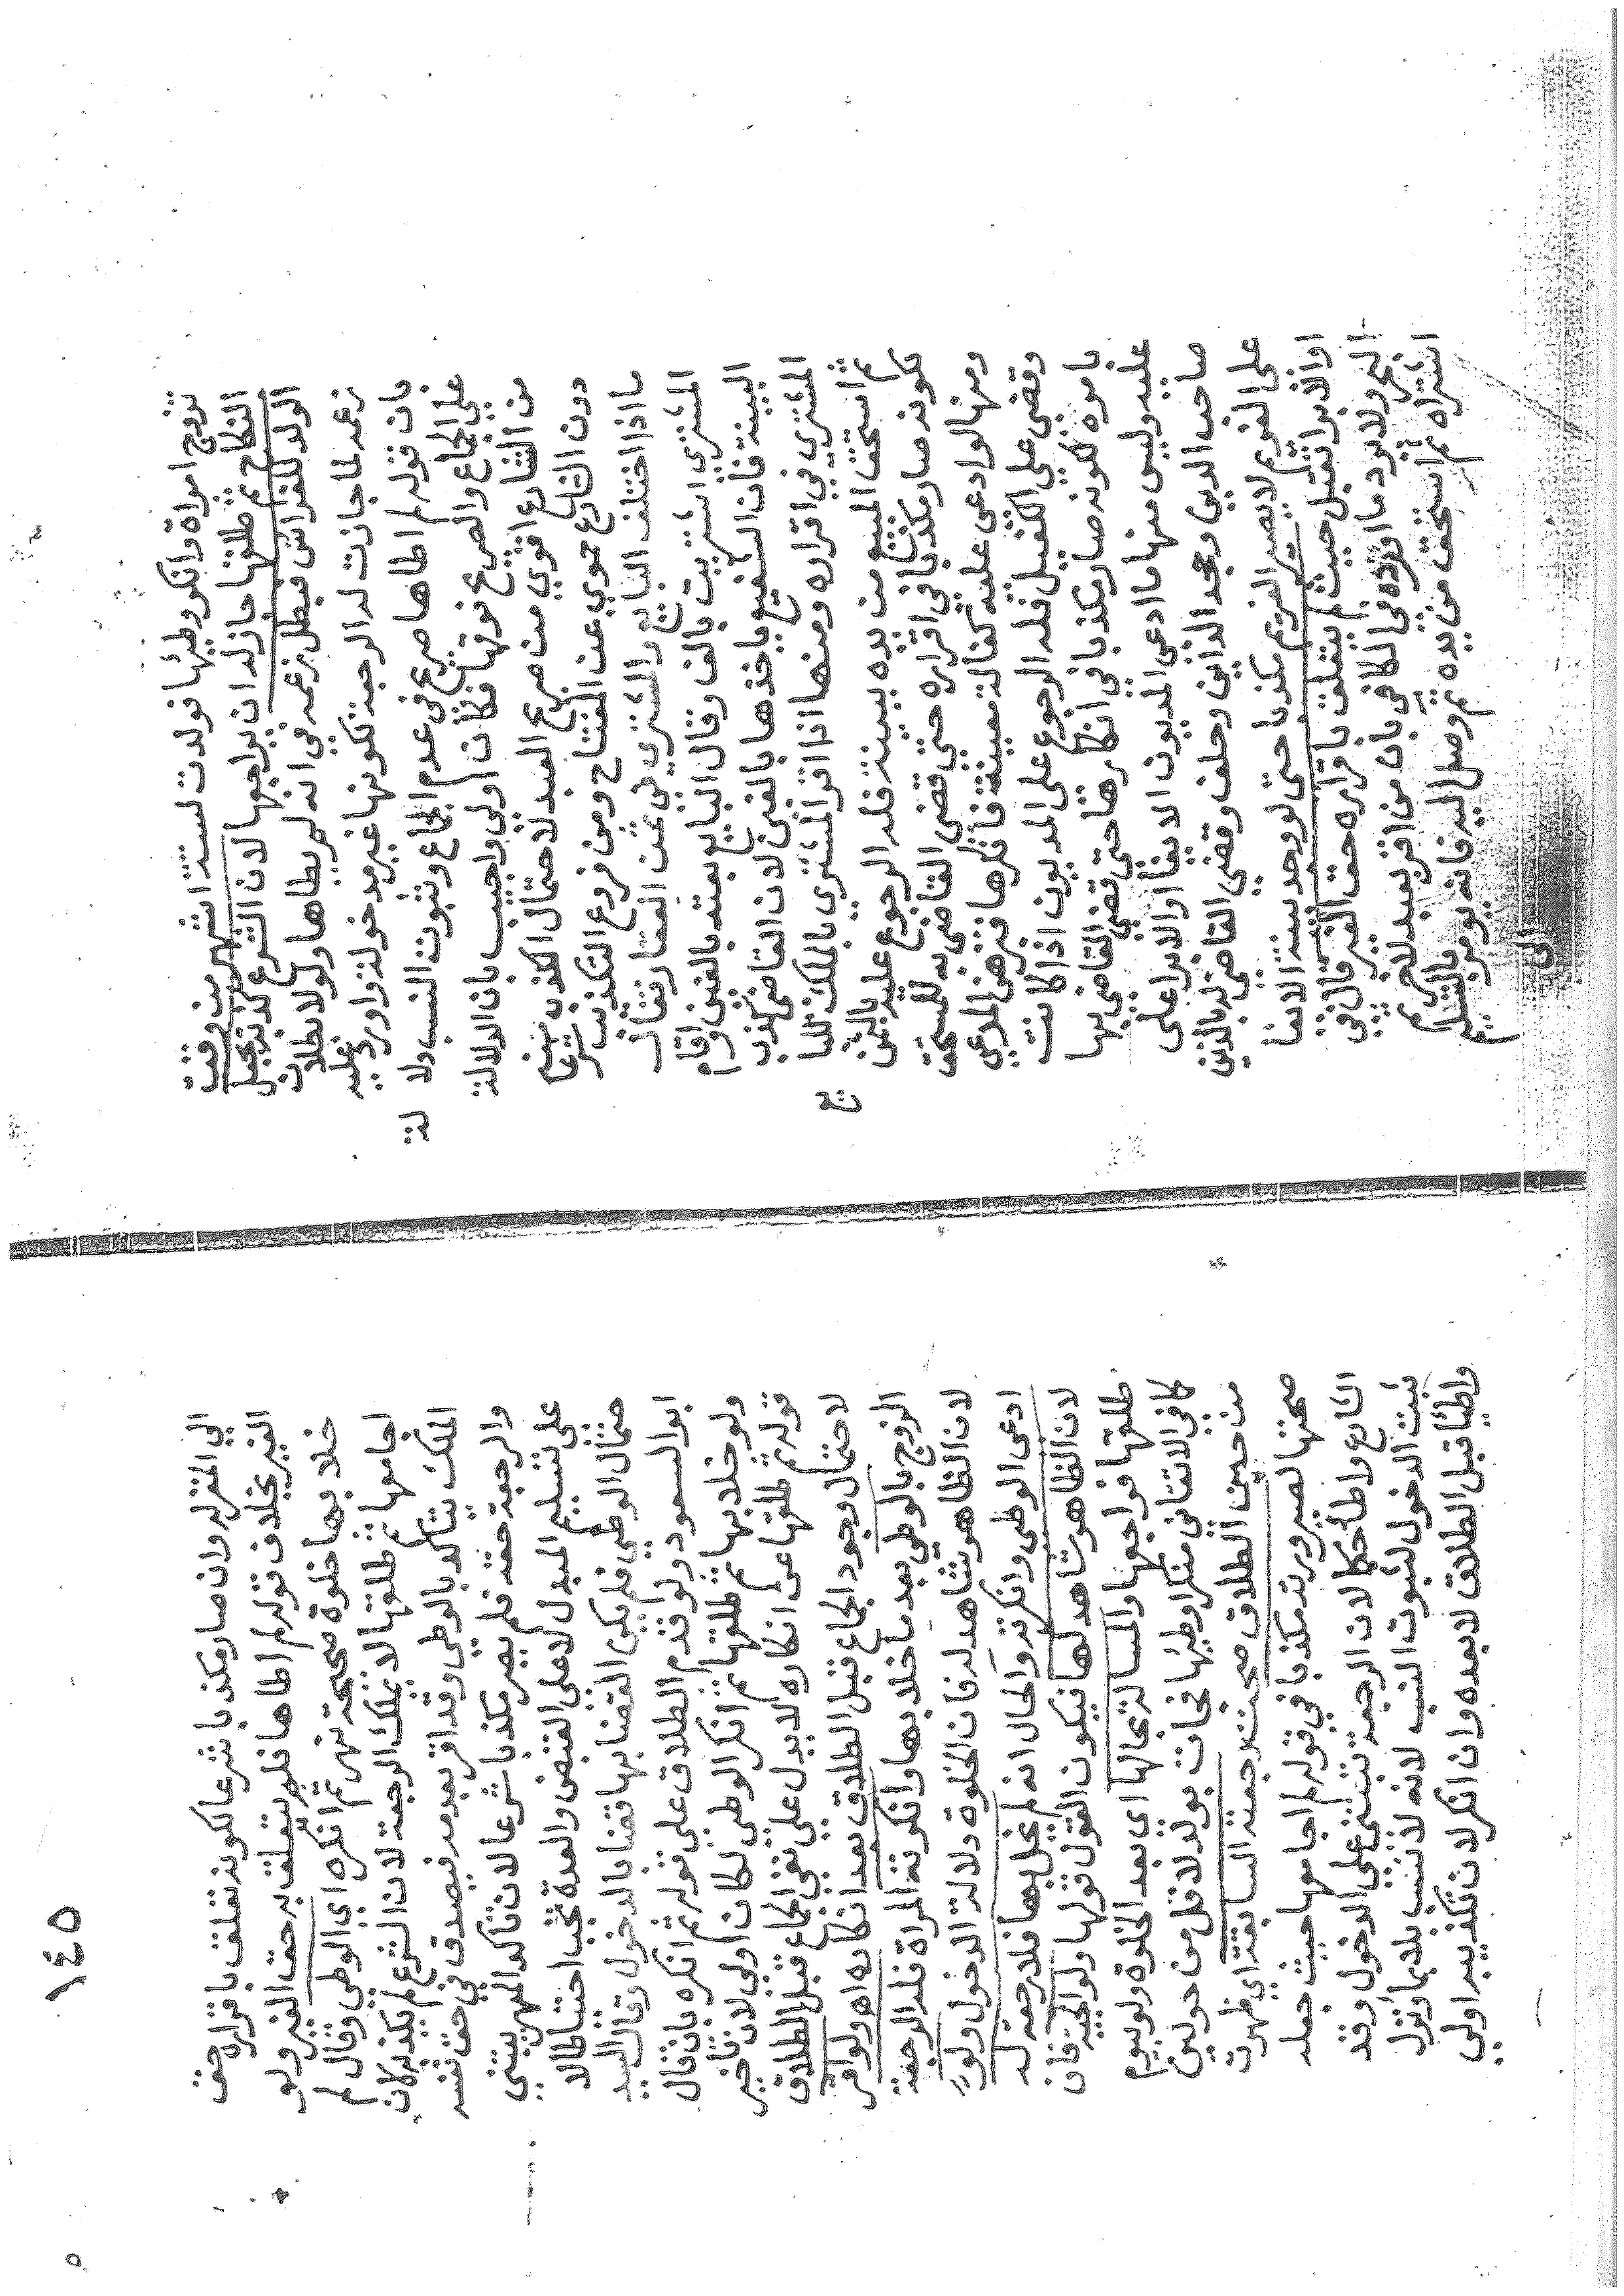 تزوج امراة وانكر وطيها فولدت لستة اشهر من وقت
النكاح ثم طلقها جاز له ان يراجعها لان الشرع كذبه بجعل
الولد للفراش فبطل زعمه في انه لم يطاها ولولا بطلان
زعمه لما جازت له الرجعة لكونها غير مدخولة واورد عليه
بان قوله لم اطاها صريح في عدم الجماع وثبوت النسب دلالة
على الجماع والصريح فوقها فكان اولى واجيب بان الدلالة
من الشارع اقوي من صريح العبد لاحتمال الكذب منه
دون الشارع حموي عن المفتاح ومن فروع التكذيب شرعا
ما اذا اختلف البايع والمشتري في ثمن العقار فقال
المشتري اشتريت بالف وقال البايع بعته بالفين واقام
البينة فان الشفيع ياخذها بالفين لان القاضي كذب
المشتري في اقراره ومنها اذا اقر المشتري بالملك للبايع
ثم استحق المبيع من يده ببينة فله الرجوع عليه بالثمن
لكونه صار مكذبا في اقراره حتى قضى القاضي به للمستحق
ومنها لو ادعى عليه كفالة معينة فانكرها فبرهن المدعي
وقضى على الكفيل فله الرجوع على المديون اذا كانت
بامره لكونه صار مكذبا في انكارها حتى قضى القاضي بها
عليه وليس منها ما ادعى المديون الايفا او الابرا على
صاحب الدين وجحد الداين وحلف وقضى القاضي له بالدين
على الغريم لا يصير الغريم مكذبا حتى لو وجد بينة الايفا
او الابرا تقبل حيث لم يتعلق باقراره حق الغير قال في
البحر ولا يرد ما اورده في الكافي بان من اقر بعبد لاخر ثم
اشتراه ثم استحق من يده ثم وصل اليه فانه يومر بالتسليم
الى
١٤٥
الي المقر له وان صار مكذبا شرعا لكونه تعلق باقراره حق
الغير بخلاف قوله لم اطاها فلم يتعلق به حق الغير ولو
خلا بها خلوة صحيحة نهر ثم انكره اي الوطي وقال لم
اجامعها ثم طلقها لا يملك الرجعة لان الشرع لم يكذبه لان
الملك يتاكد بالوطي وقد اقر بعدمه فيصدق في حق نفسه
والرجعة حقه فلم يصر مكذبا شرعا لان تاكد المهر يبتني
على تسليم المبدل لا على القبض والعدة تجب احتياطا لا
حتمال الوطي فلم يكن القضا بها قضا بالدخول وقال السيد
ابو السعود ولو قدم الطلاق على قوله ثم انكره بان قال
ولو خلا بها ثم طلقها ثم انكر الوطي لكان اولى لان تاخير
قوله ثم طلقها عن انكاره لا يدل على نفي الجماع قبل الطلاق
لاحتمال وجود الجماع قبل الطلاق بعد انكاره اه ولو اقر
الزوج بالوطي بعد ما خلا بها وانكرته المراة فله الرجعة
لان الظاهر شاهد له فان الخلوة دلالة الدخول ولو
ادعى الوطي وانكرته والحال انه لم يخل بها فلا رجعة له
لان الظاهر شاهد لها فيكون القول قولها ولو لم فان
طلقها فراجعها والمسالة بحالها اي بعد الخلوة وليوم
كما في الاتقاني منكرا وطيها فجات بولد لاقل من حولين
من حين الطلاق صحت رجعته السابقة اي ظهرت
صحتها لصيرورته مكذبا في قوله لم اجامعها حيث جعله
الشارع واطئا حكما لان الرجعة تبتني على الدخول وقد
ثبت الدخول لثبوت النسب لانه لا نسب بلا ما فنزل
واطئا قبل الطلاق لا بعده وان انكر لان تكذيبه اولى